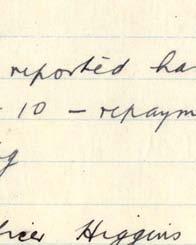 reported ha
- 10 - repaym
g
icer Higgins